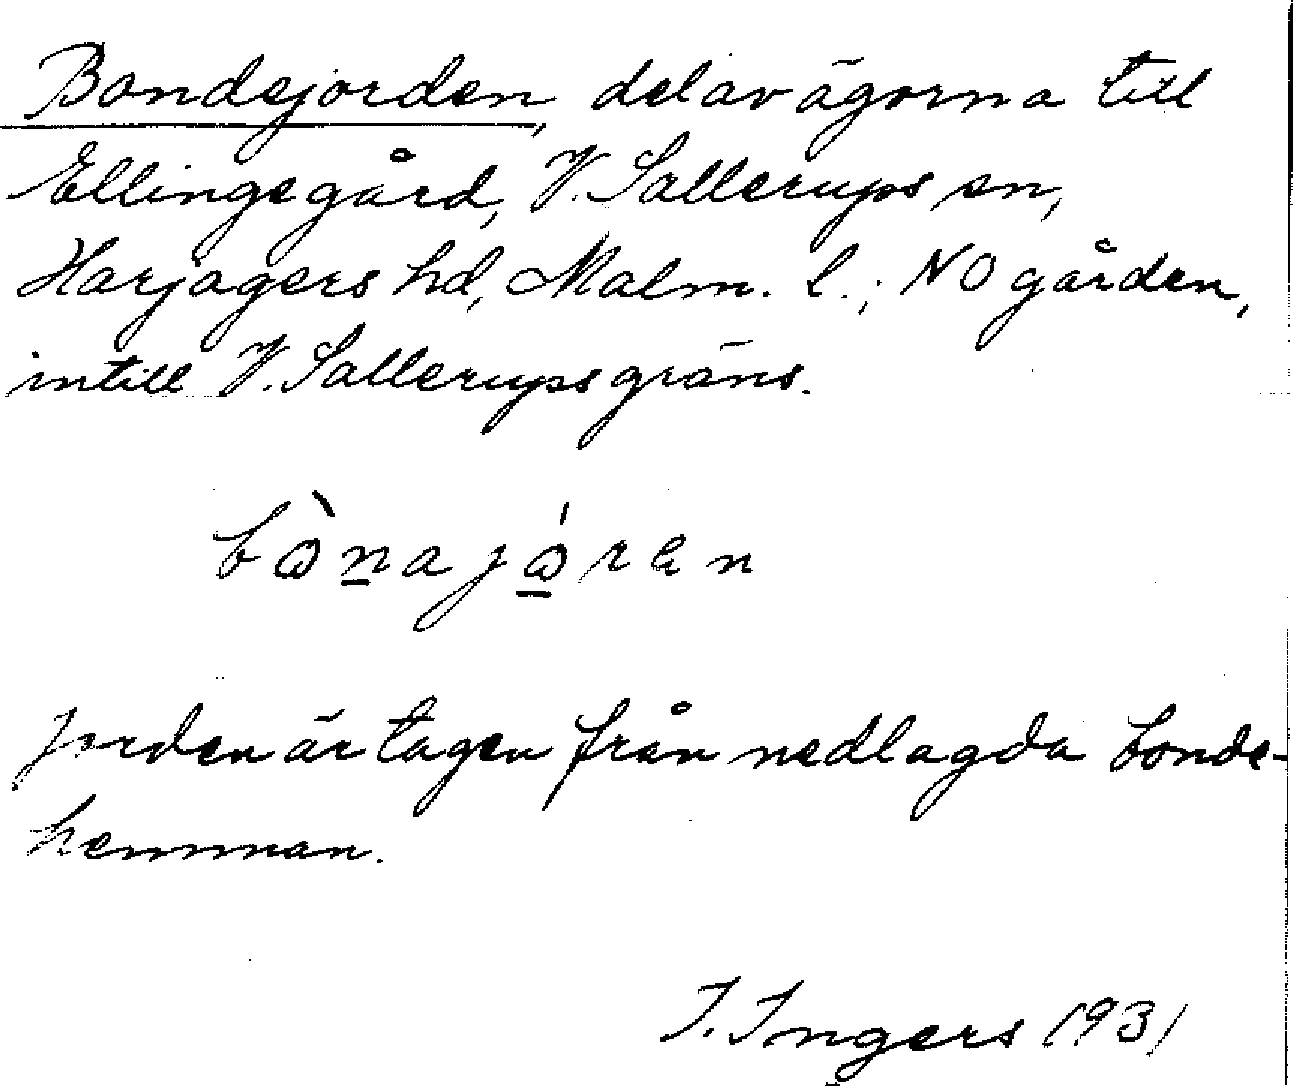 Bondejorden, del av ägorna till
Ellinge gård, V. Sallerups sn,
Harjagers hd, Malm. l.; NO gården,
intill V. Sallerups gräns.
bònajóren
Jorden är tagen från nedlagda bonde-
hemman.
I. Ingers 1931